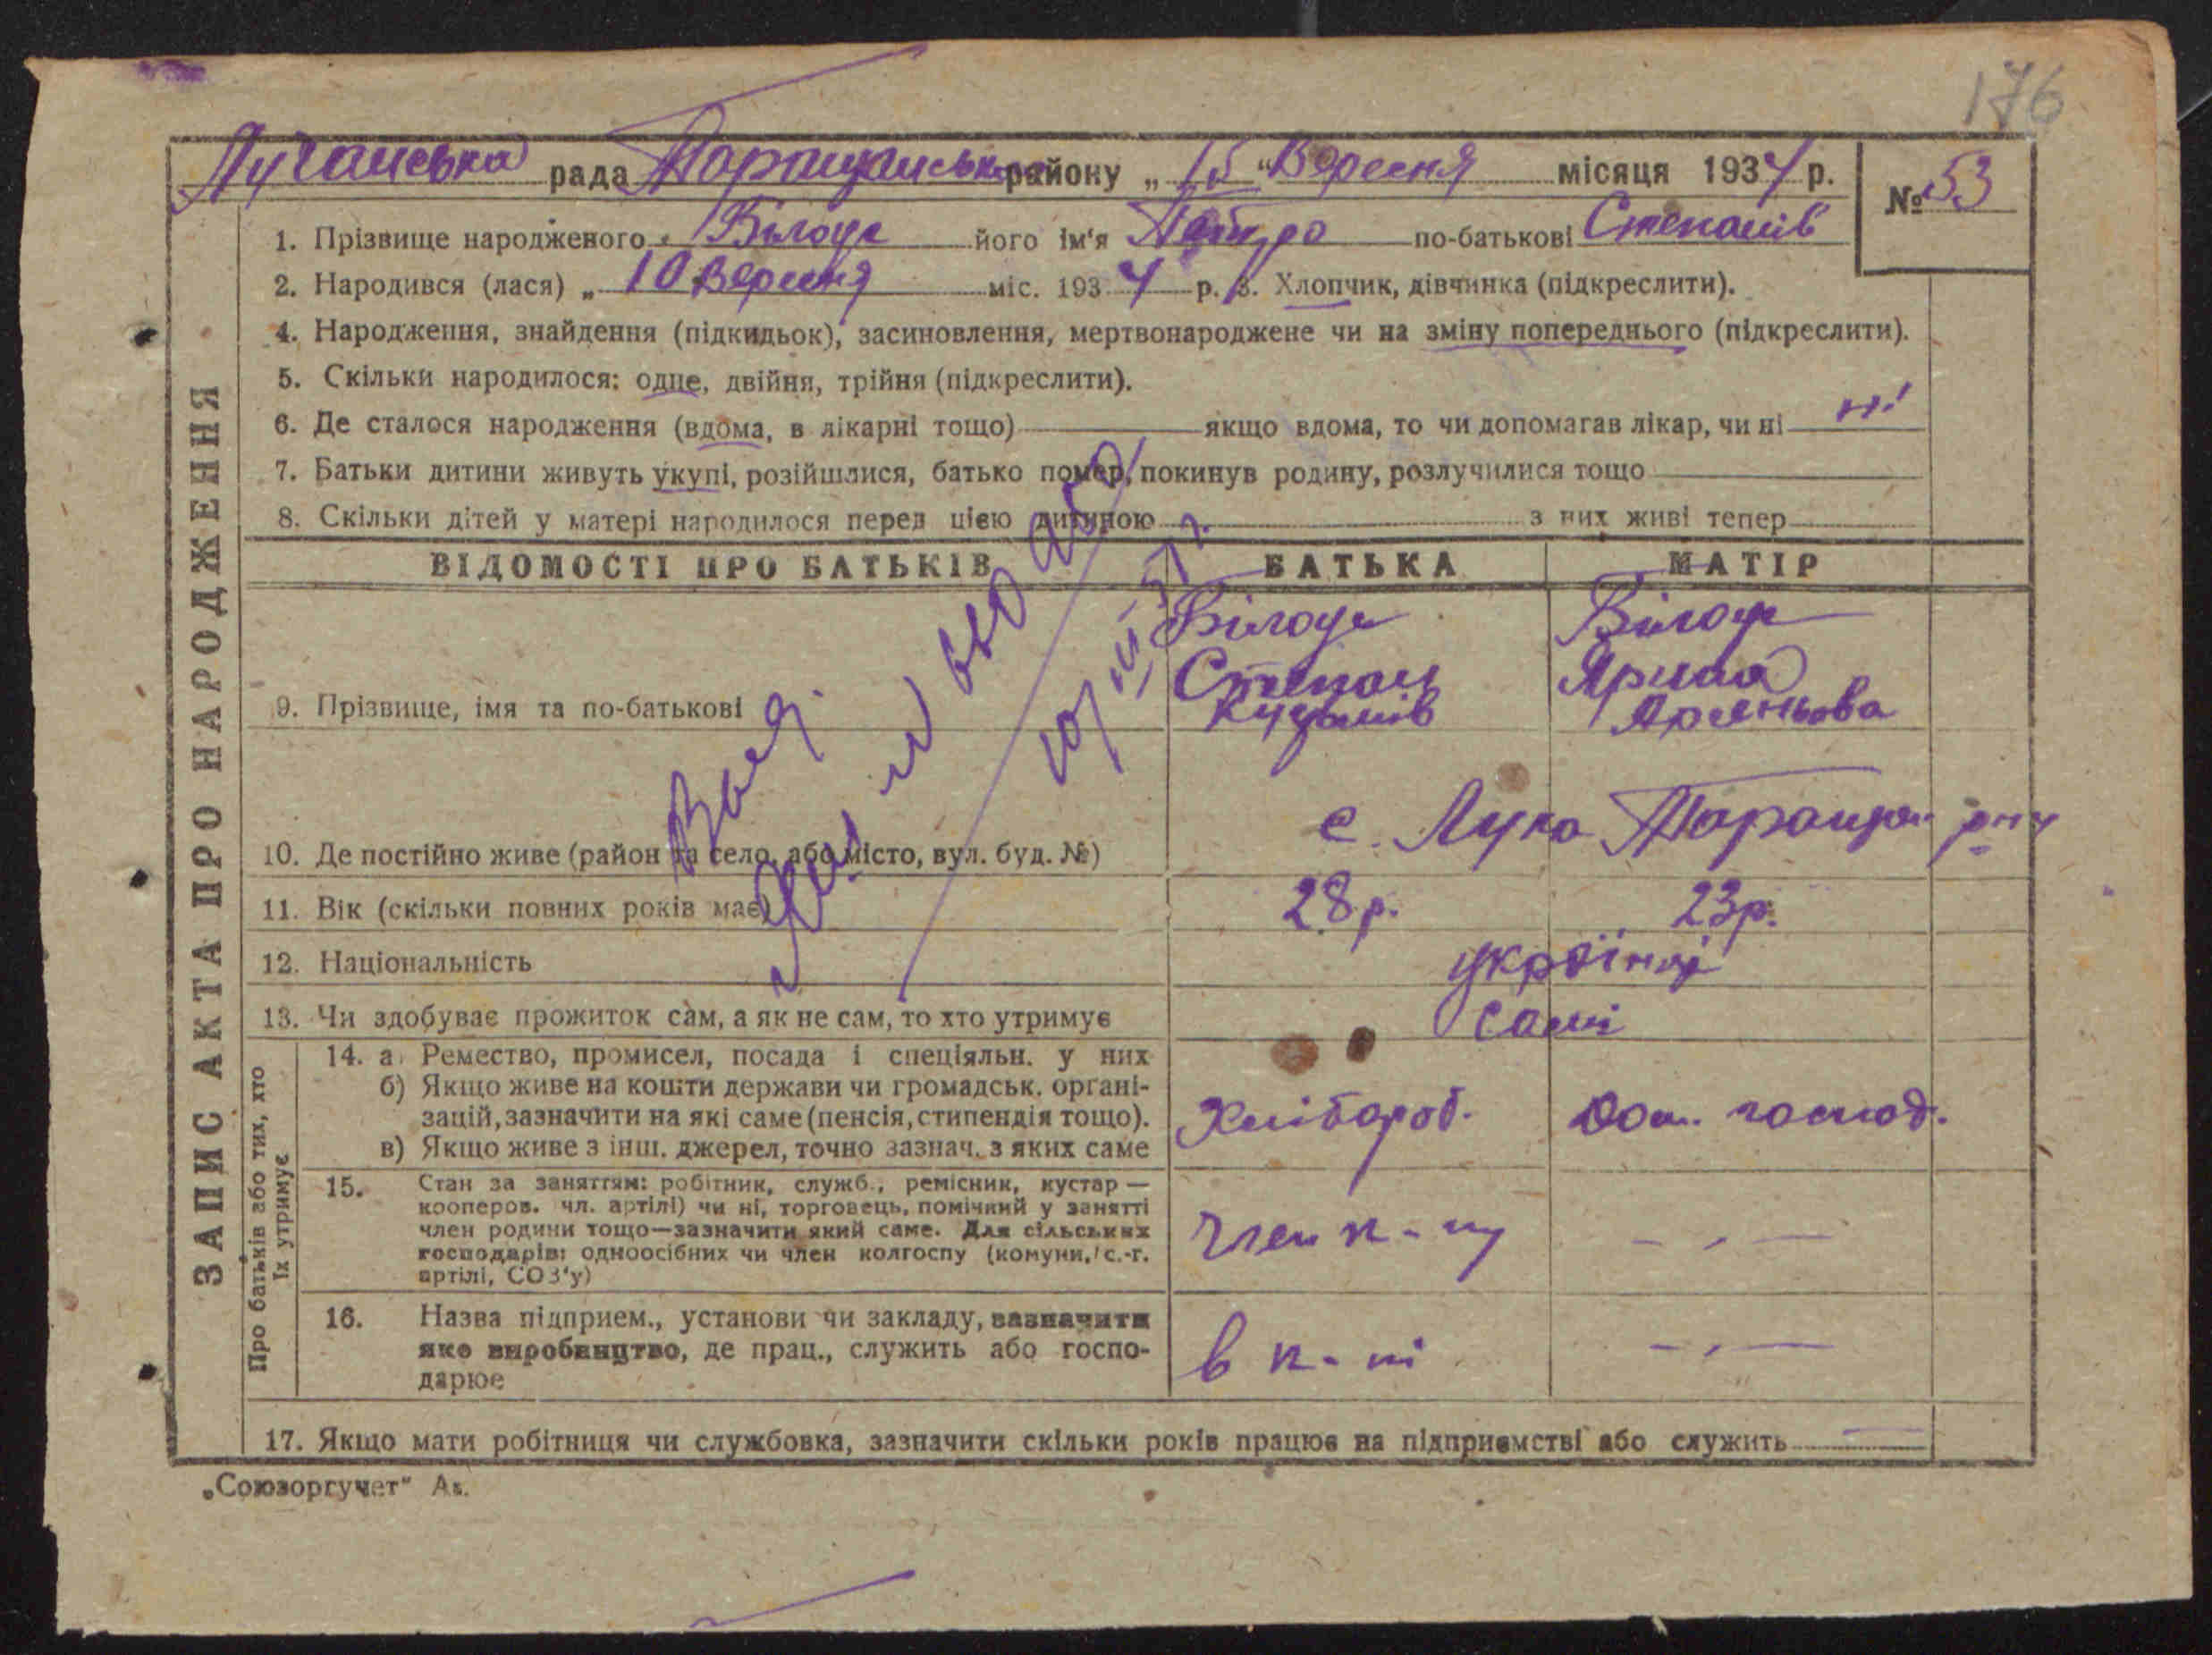 176
Лучанська рада Таращанськ району „ 15 “ Вересня місяця 1934 р. № 53
1. Прізвище народженого Білоус його ім'я Петро по-батькові Степанів
2. Народився (лася) „ 10 Вересня міс. 1934 р. 3. Хлопчик, дівчинка (підкреслити).
4. Народження, знайдення (підкидьок), засиновлення, мертвонароджене чи на зміну попереднього (підкреслити).
5. Скільки народилося: одне, двійня, трійня (підкреслити).
6. Де сталося народження (вдома, в лікарні тощо) якщо вдома, то чи допомагав лікар, чи ні ні
7. Батьки дитини живуть укупі, розійшлися, батько помер, покинув родину, розлучилися тощо
8. Скільки дітей у матері народилося перед цією дитиною з них живі тепер
ЗАПИС АКТА ПРО НАРОДЖЕННЯ
ВІДОМОСТІ ПРО БАТЬКІВ БАТЬКА МАТІР
9. Прізвище, імя та по-батькові
Білоус
Степан
Кузьмів
Білоус
Ярина
Арсеньова
10. Де постійно живе (район та село, або місто, вул. буд. №) с. Лука Таращан. р-ну
11. Вік (скільки повних років має) 28 р. 23 р.
12. Національність українці
13. Чи здобуває прожиток сам, а як не сам, то хто утримує самі
Про батьків або тих, хто
їх утримує
14. а) Ремество, промисел, посада і спеціяльн. у них
б) Якщо живе на кошти держави чи громадськ. органі-
зацій, зазначити на які саме (пенсія, стипендія тощо).
в) Якщо живе з інш. джерел, точно зазнач. з яких саме
Хлібороб. Дом. господ.
15. Стан за заняттям: робітник, служб., ремісник, кустар —
кооперов. чл. артілі) чи ні, торговець, помічний у занятті
член родини тощо—зазначити який саме. Для сільських
господарів: одноосібних чи член колгоспу (комуни, с.-г.
артілі, СОЗ'у)
член к-пу
16. Назва підприєм., установи чи закладу, зазначити
яке виробництво, де прац., служить або госпо-
дарює
в к-пі
17. Якщо мати робітниця чи службовка, зазначити скільки років працює на підприємстві або служить
„Союзоргучет“